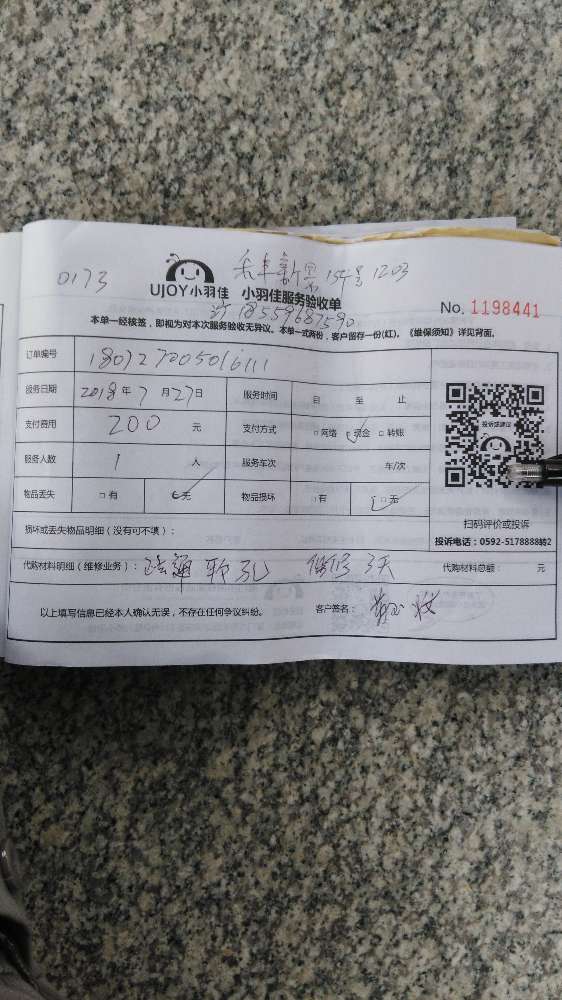 0173
UJOY小羽佳 小羽佳服务验收单
154号 1203
18559687590
No. 1198441
本单一经核签，即视为对本次服务验收无异议。本单一式两份，客户留存一份(红)。《维保须知》详见背面。
订单编号 180727005016111
服务日期 2018年7月27日 服务时间 自 至 止
支付费用 200 元 支付方式 □网络 ☑现金 □转账
服务人数 1 人 服务车次 车/次
物品丢失 □有 ☑无 物品损坏 □有 ☑无
投诉或建议
扫码评价或投诉
投诉电话：0592-5178888转2
损坏或丢失物品明细（没有可不填）：
代购材料明细（维修业务）： 疏通 保修3天 代购材料总额： 元
以上填写信息已经本人确认无误，不存在任何争议纠纷。 客户签名：